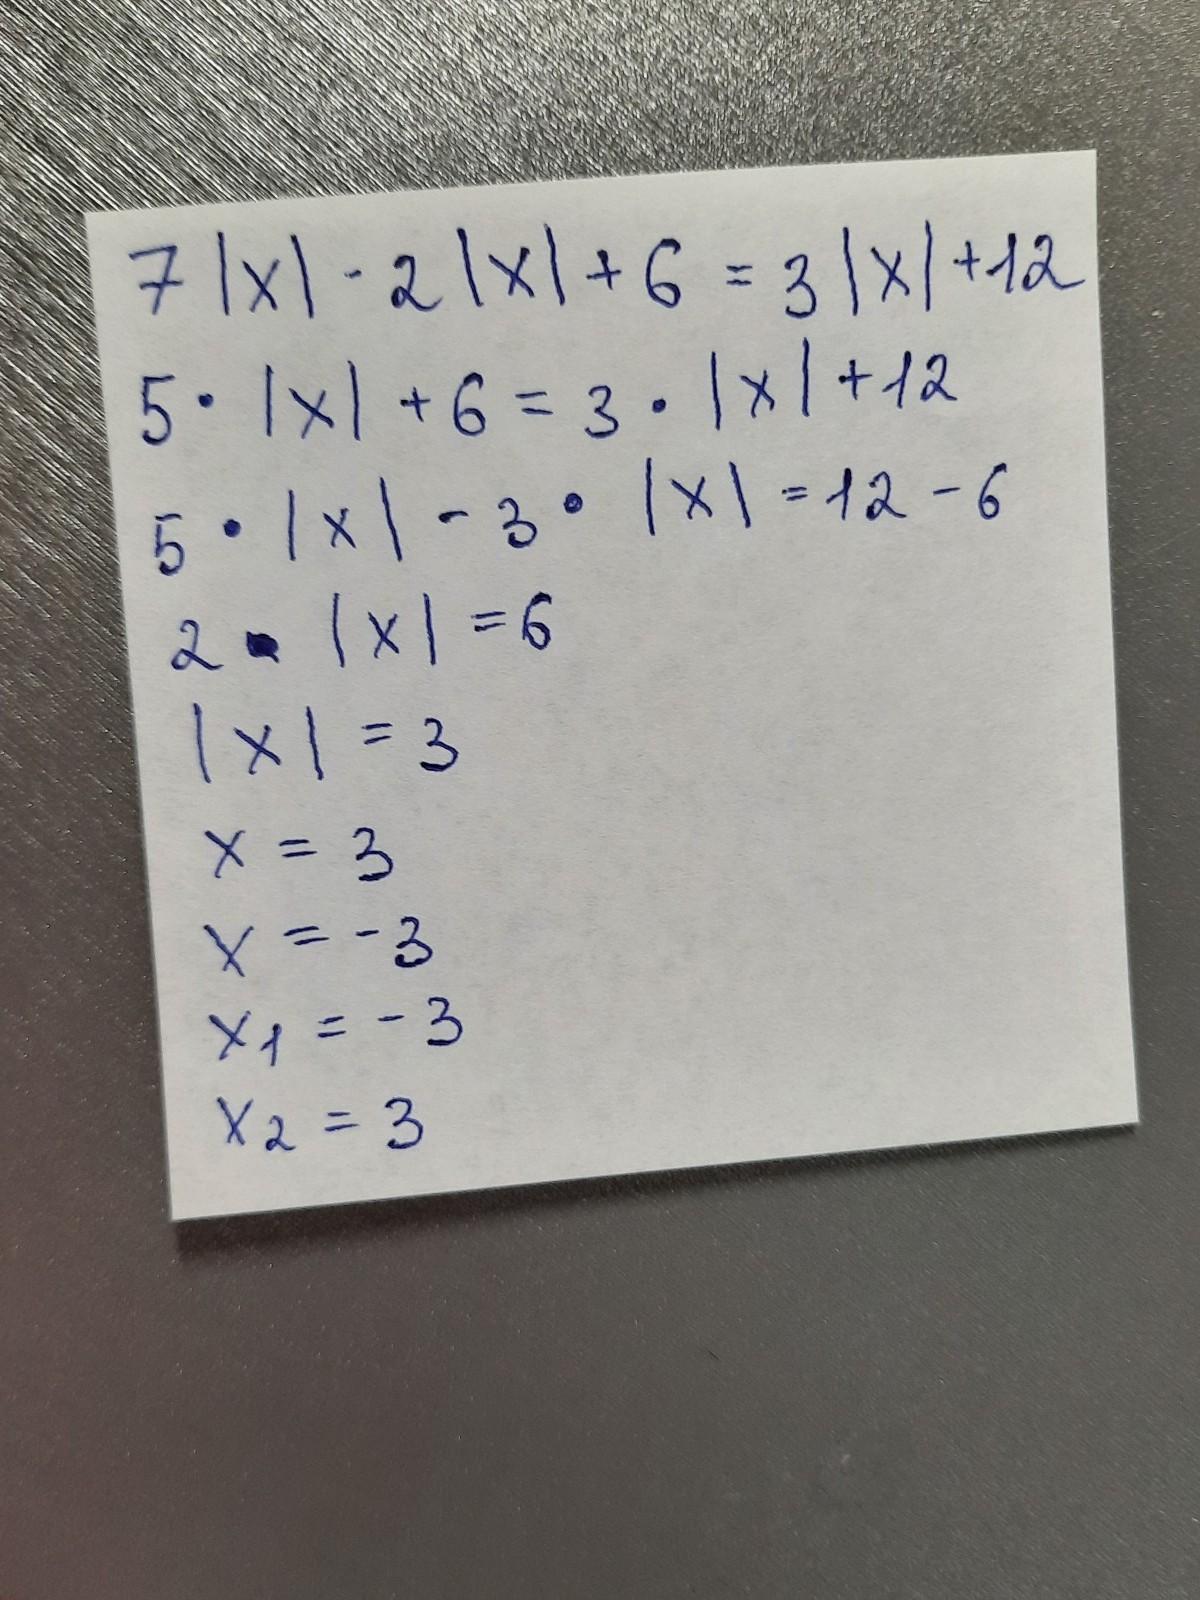 7|x| - 2|x| + 6 = 3|x| + 12
5 · |x| + 6 = 3 · |x| + 12
5 · |x| - 3 · |x| = 12 - 6
2 · |x| = 6
|x| = 3
x = 3
x = -3
x₁ = -3
x₂ = 3